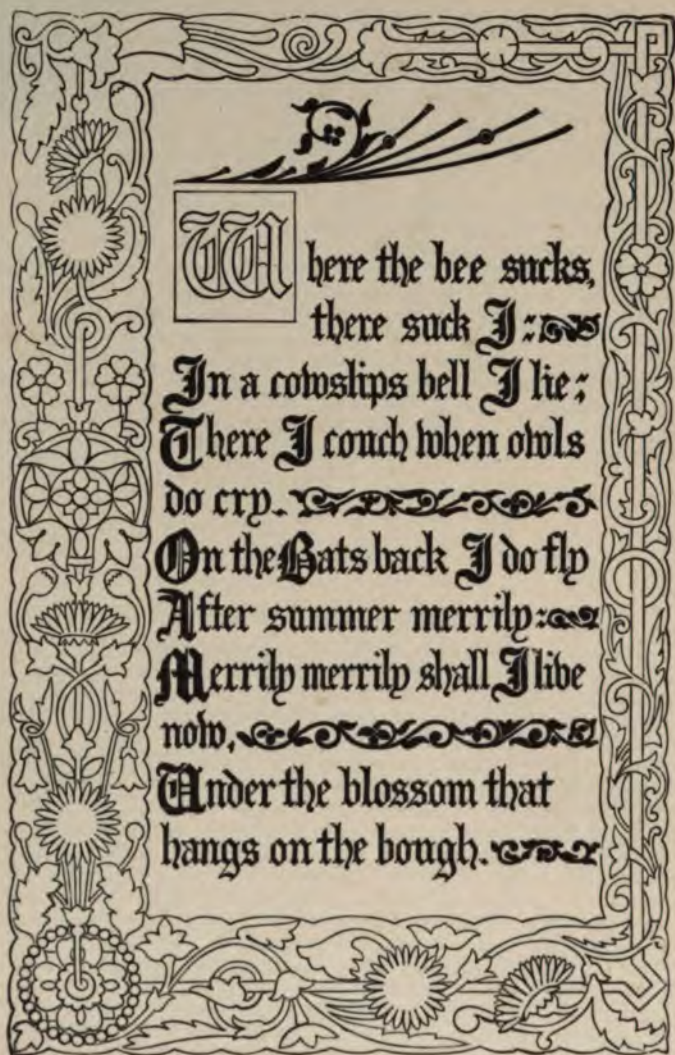 Where the bee sucks,
there suck I:
In a cowslips bell I lie:
There I couch when owls
do cry.
On the Bats back I do fly
After summer merrily:
Merrily merrily shall I live
now,
Under the blossom that
hangs on the bough.